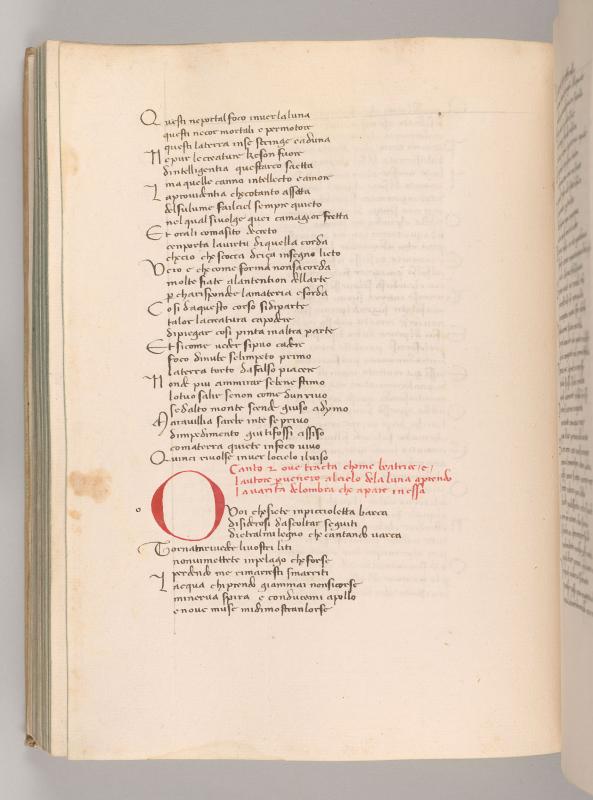 Questi neportal foco inver laluna
questi necor mortali e permotore
questi laterra inse stringe e aduna
Ne pur le creature keson fuore
dintelligentia questarco saetta
ma quelle canno intellecto e amore
La providentia checotanto assetta
delsulume failciel sempre quieto
nel qual sivolge quei camagior fretta
Et orali comasito decreto
cenporta lavirtu diquella corda
checio chescocca driça insegno lieto
Vero e che come forma nonsacorda
molte fiate alantention dellarte
p charisponder lamateria esorda
Cosi daquesto corso sidiparte
talor lacreatura capodere
dipiegar cosi pinta inaltra parte
Et sicome veder sipuo cadere
foco dinube selimpeto primo
laterra torto dafalso piacere
Non de piu ammirar sebene stimo
lotuo salir senon come dunrivo
sedalto monte scende giuso adymo
Maravillia sarebe inte seprivo
dimpedimento giutifossi assiso
comaterra quiete infoco vivo
Quinci rivolse inver locielo ilviso
Canto 2 ove tracta chome beatrice e
lautore puenero alcielo dela luna aprendo
lavarita delombra che apare in essa
o
O Voi chesiete inpiccioletta barca
disiderosi dascoltar seguiti
dietralmi legno che cantando varca
Tornate rivedere livostri liti
nonvimettete inpelago cheforse
perdendo me rimaresti smarriti
Lacqua chiprendo giammai nonsicorse
minerva spira e conducemi apollo
e nove muse midimostran lorse